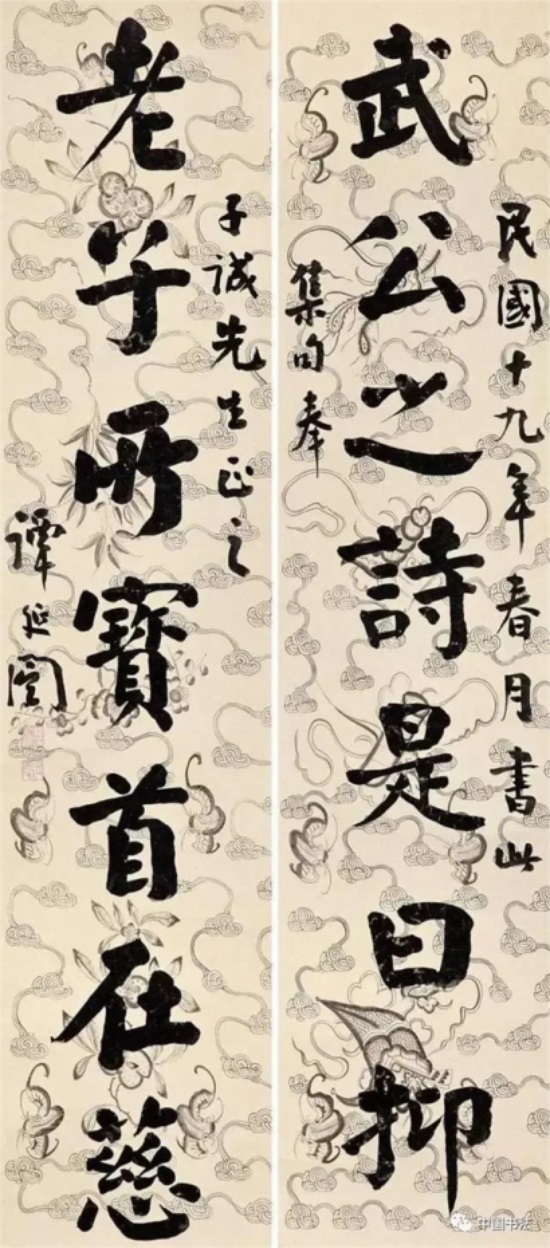 民國十九年春月書此
武公之詩是曰抑
集句奉
子誠先生正之
老子所寶首在慈
譚延闓
中国书法